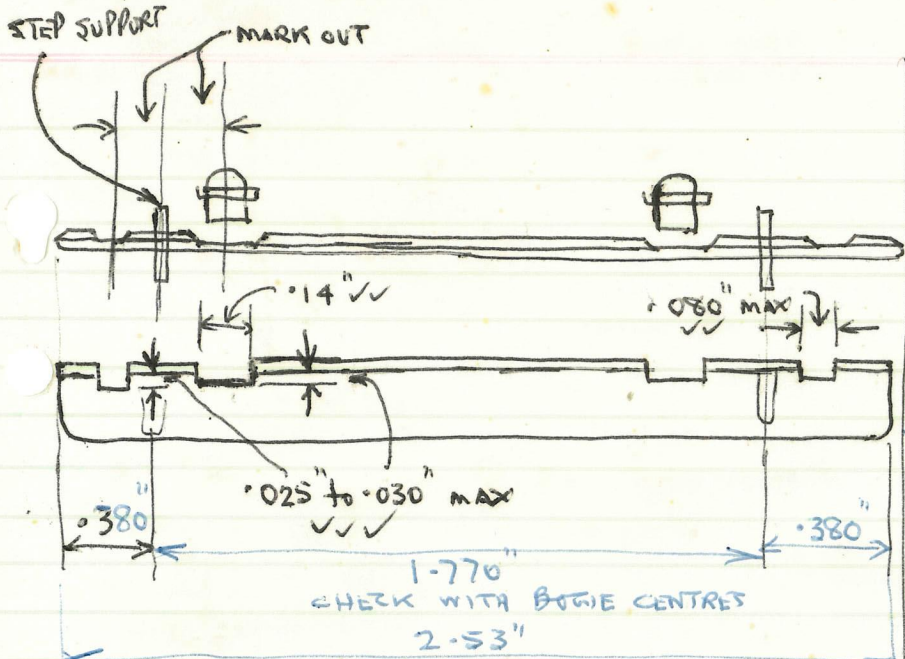 STEP SUPPORT
MARK OUT
.14" ✓✓
.080" MAX
✓✓
.025" to .030" MAX
✓✓✓
.380"
.380"
1.770"
CHECK WITH BOGIE CENTRES
2.53"